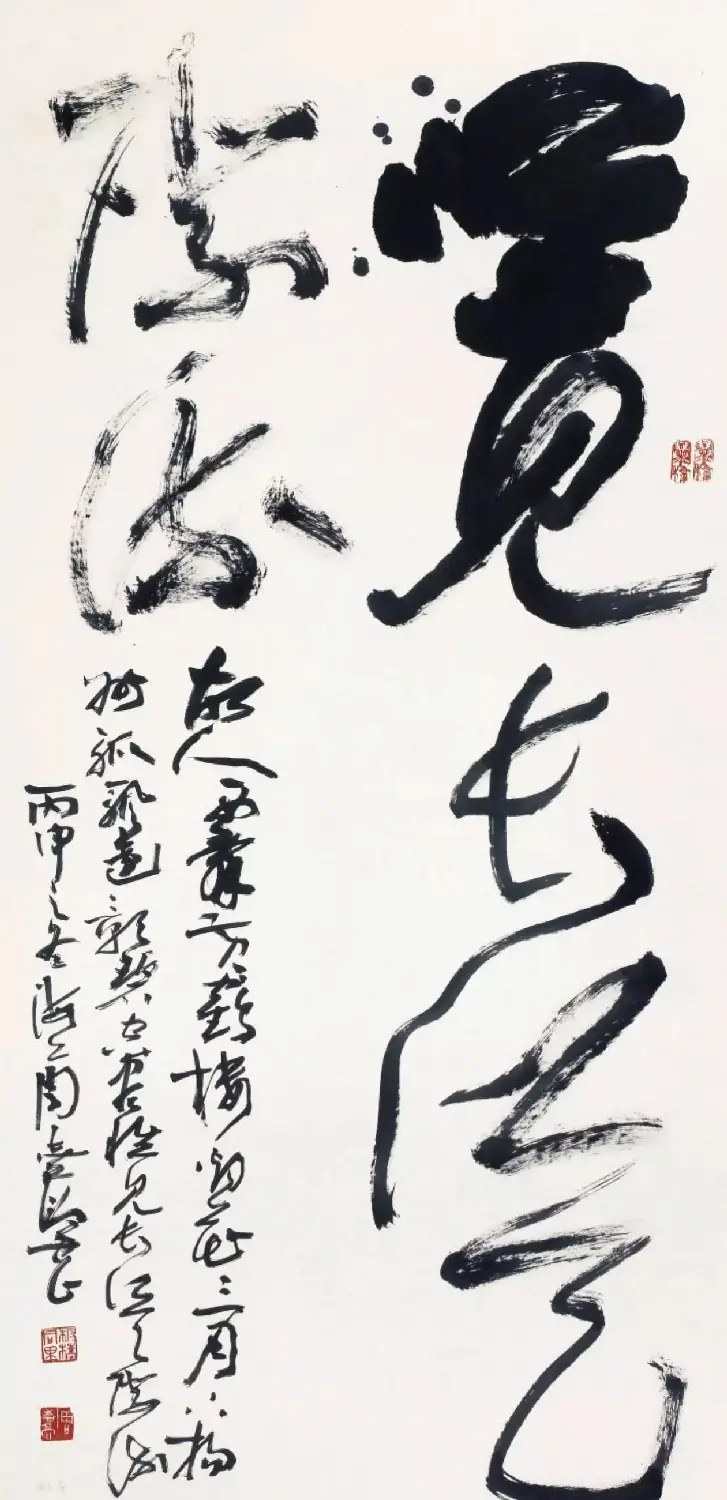 唯見長江天
際流
故人西辭黃鶴樓煙花三月下揚
州孤帆遠影碧空盡惟見長江天際流
丙申之冬海上周志高